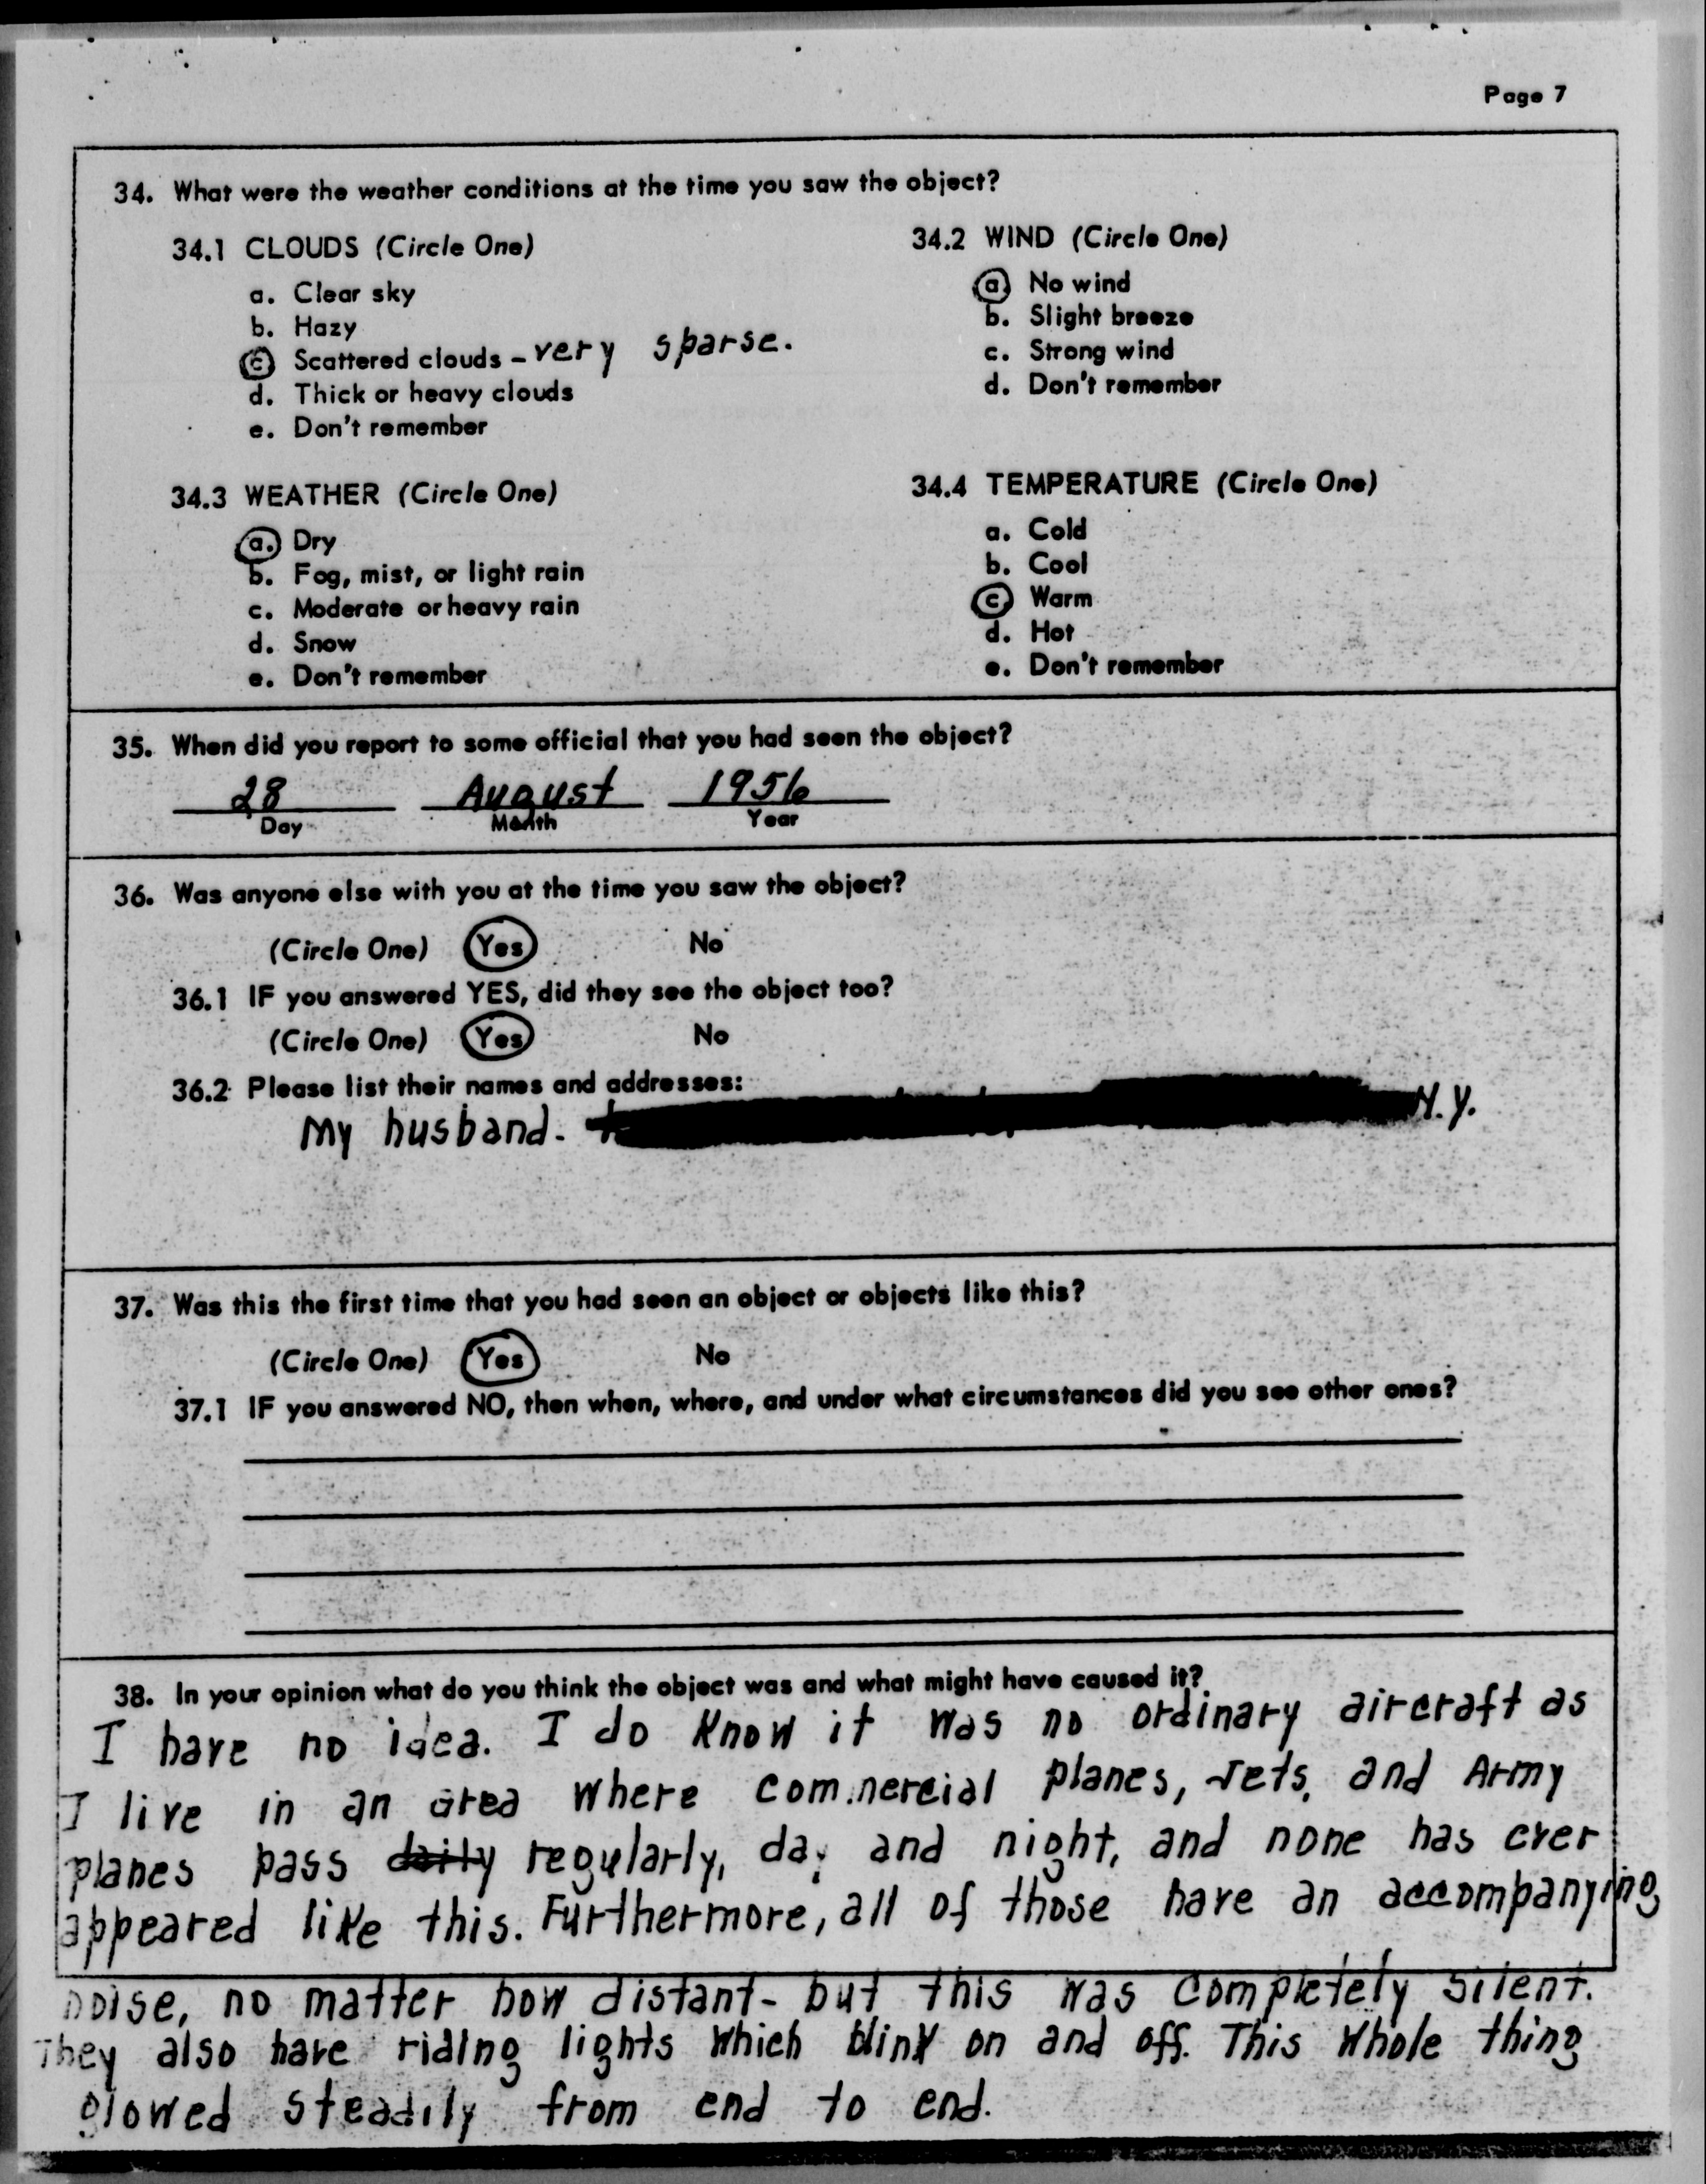 Page 7
34. What were the weather conditions at the time you saw the object?
34.1 CLOUDS (Circle One)
a. Clear sky
b. Hazy
c. Scattered clouds - very sparse.
d. Thick or heavy clouds
e. Don't remember
34.2 WIND (Circle One)
a. No wind
b. Slight breeze
c. Strong wind
d. Don't remember
34.3 WEATHER (Circle One)
a. Dry
b. Fog, mist, or light rain
c. Moderate or heavy rain
d. Snow
e. Don't remember
34.4 TEMPERATURE (Circle One)
a. Cold
b. Cool
c. Warm
d. Hot
e. Don't remember
35. When did you report to some official that you had seen the object?
28 August 1956
Day Month Year
36. Was anyone else with you at the time you saw the object?
(Circle One) Yes No
36.1 IF you answered YES, did they see the object too?
(Circle One) Yes No
36.2 Please list their names and addresses:
My husband. - N.Y.
37. Was this the first time that you had seen an object or objects like this?
(Circle One) Yes No
37.1 IF you answered NO, then when, where, and under what circumstances did you see other ones?
38. In your opinion what do you think the object was and what might have caused it?
I have no idea. I do know it was no ordinary aircraft as
I live in an area where commercial planes, Jets, and Army
planes pass daily regularly, day and night, and none has ever
appeared like this. Furthermore, all of those have an accompanying
noise, no matter how distant - but this was completely silent.
They also have riding lights which blink on and off. This whole thing
glowed steadily from end to end.